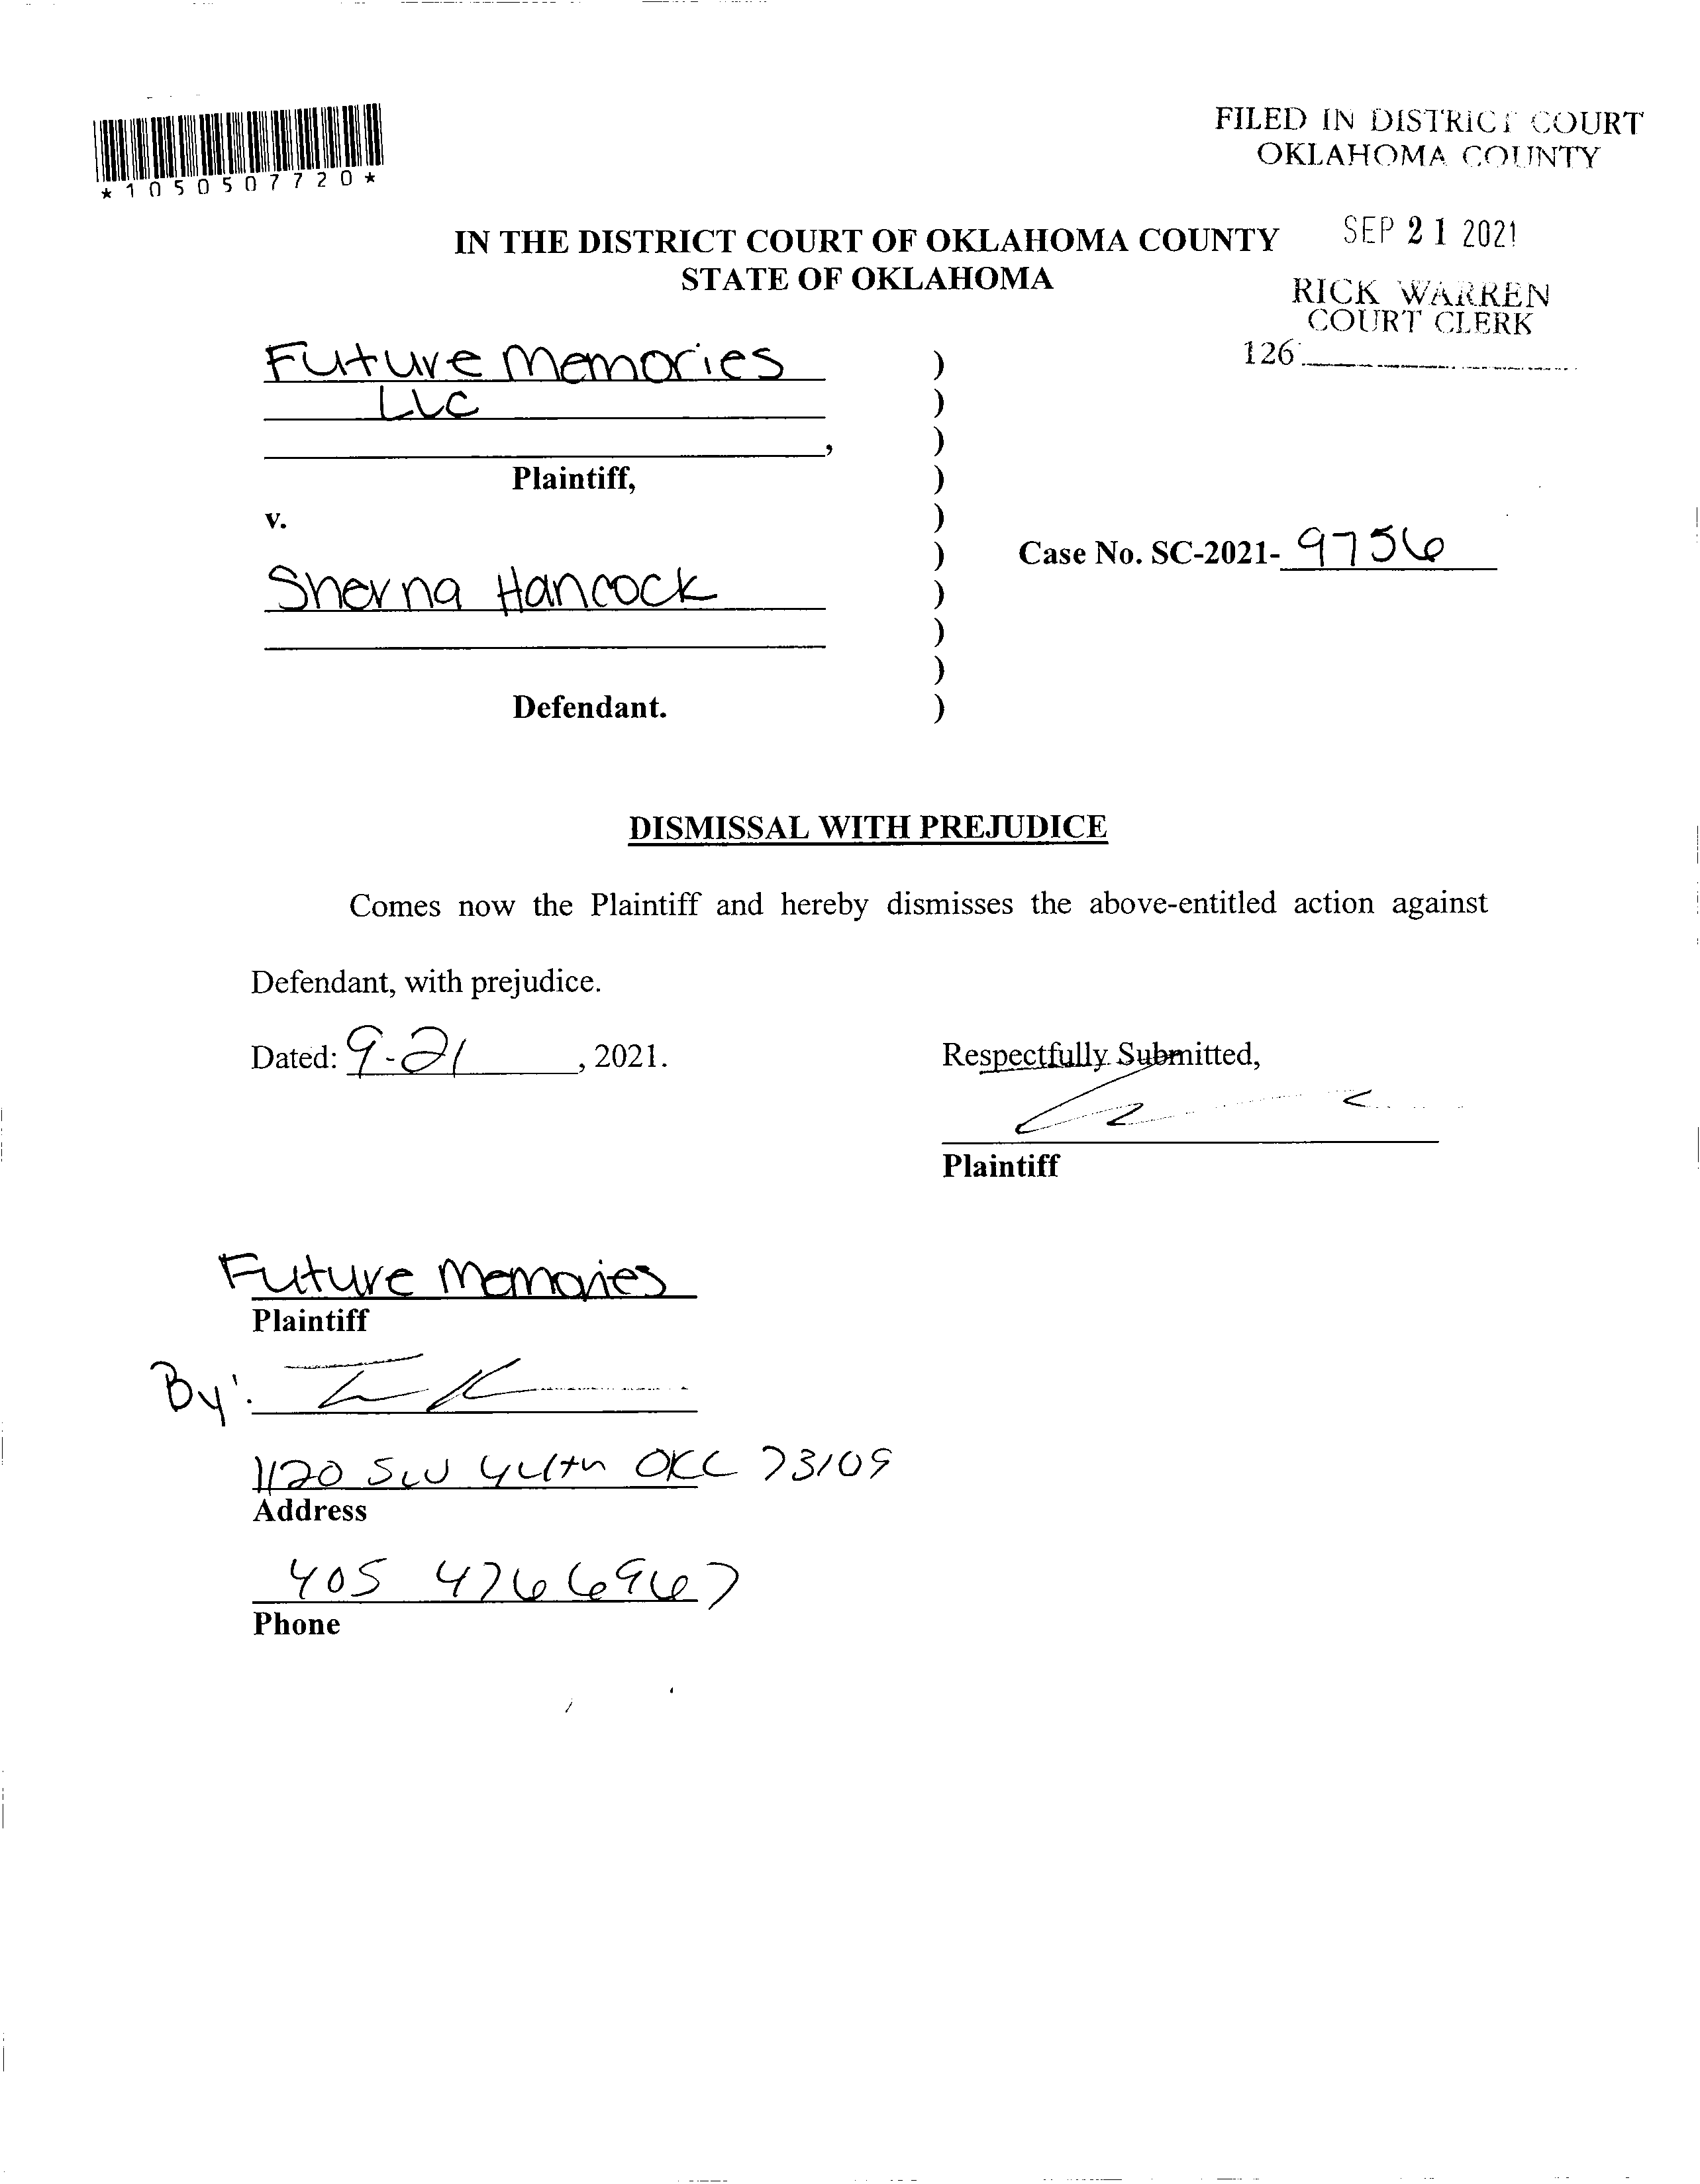 *1050507720*
FILED IN DISTRICT COURT
OKLAHOMA COUNTY
SEP 21 2021
RICK WARREN
COURT CLERK
126
IN THE DISTRICT COURT OF OKLAHOMA COUNTY
STATE OF OKLAHOMA
Future Memories )
LLC )
, )
Plaintiff, )
v. )
) Case No. SC-2021- 9756
Sherna Hancock )
)
)
Defendant. )
DISMISSAL WITH PREJUDICE
Comes now the Plaintiff and hereby dismisses the above-entitled action against
Defendant, with prejudice.
Dated: 9-21, 2021. Respectfully Submitted,
Plaintiff
Future Memories
Plaintiff
By:
1120 SW 44th OKC 73109
Address
405 476 6967
Phone